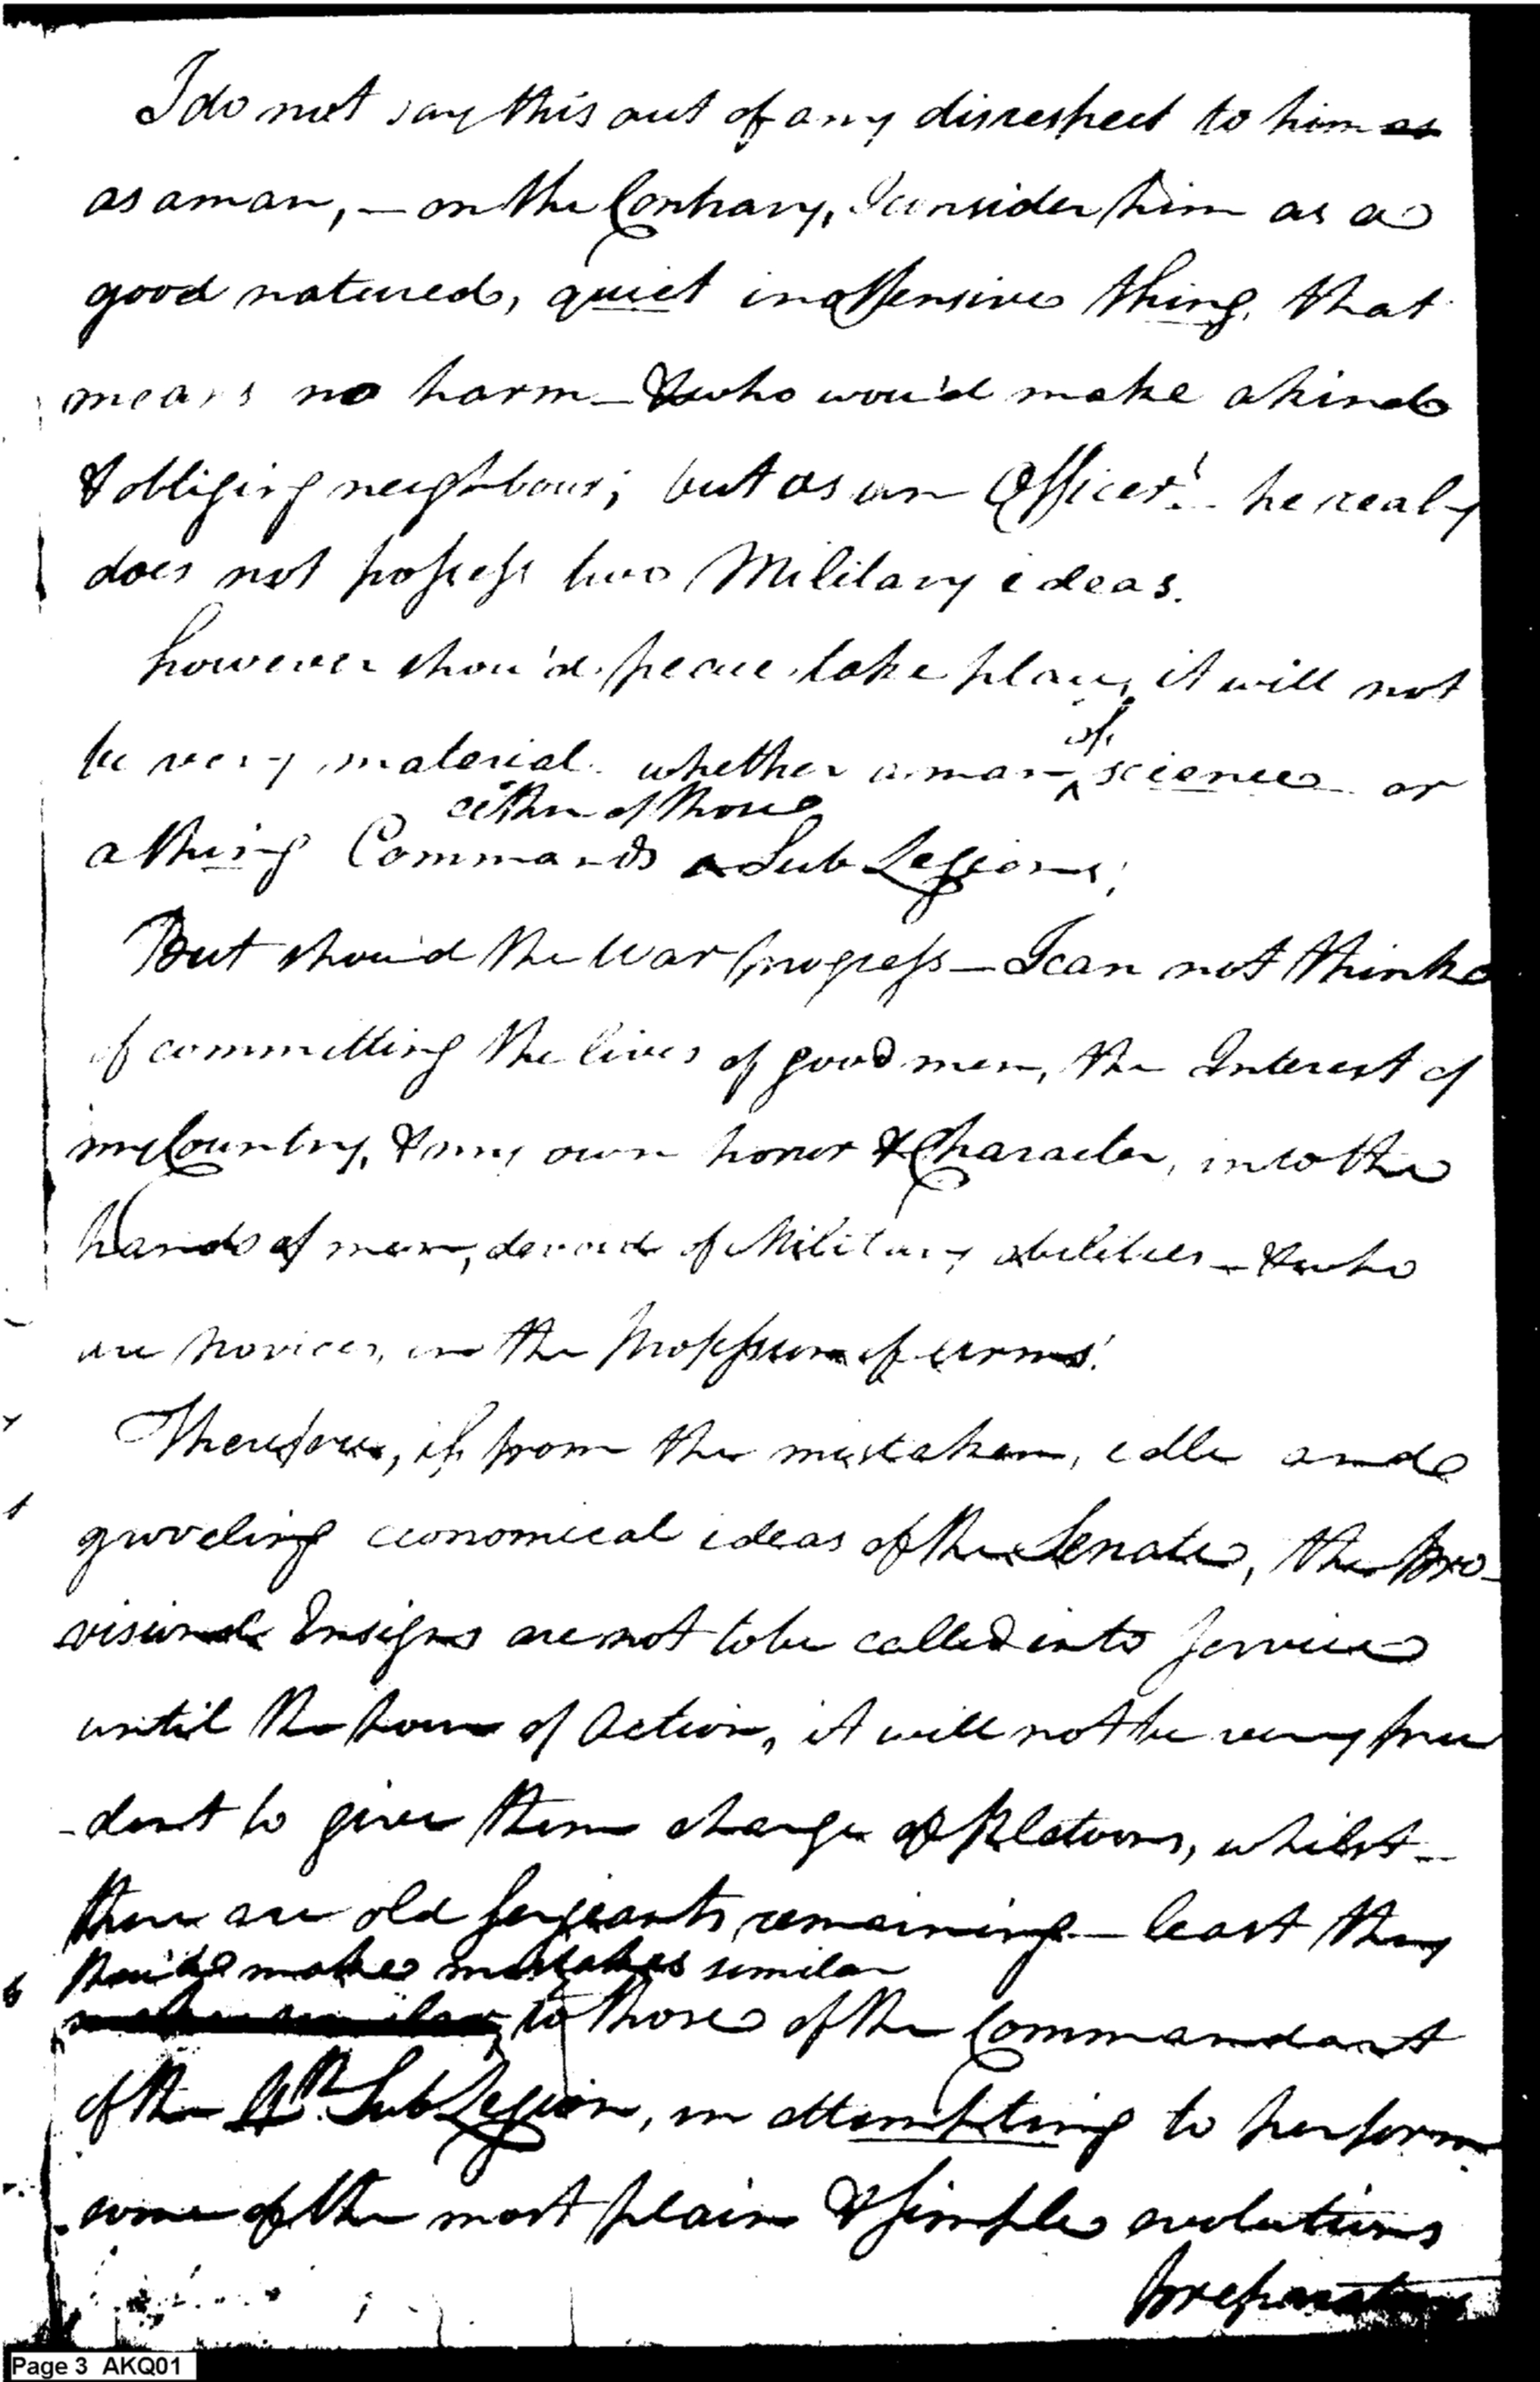 I do not say this out of any disrespect to him as
as a man, - on the Contrary, I consider him as a
good natured, quiet inoffensive thing, that
means no harm - & who wou'd make a kind
& obliging neighbour; but as an Officer! - he realy
does not possess two Military ideas.
however shou'd peace take place, it will not
be very material whether a man of science or
either of those
a thing Commands a Sub Legions;
But shou'd the War progress - I can not think
of committing the lives of good men, the Interest of
my Country, & my own honor & Character, into the
hands of men, devoid of Military abilities - & who
are novices, in the profession of arms!
Therefore, if, from the mistaken, idle and
groveling economical ideas of the Senate, the pro-
visional Ensigns are not to be called into service
until the hour of Action, it will not be very pru
-dent to give them charge of Platoons, whilst -
there are old serjeants remaining - least they
shou'd make mistakes similar
to those of the Commandant
of the 4th. Sub Legion, in attempting to perform
some of the most plain & simple evolutions
preparatory
Page 3 AKQ01